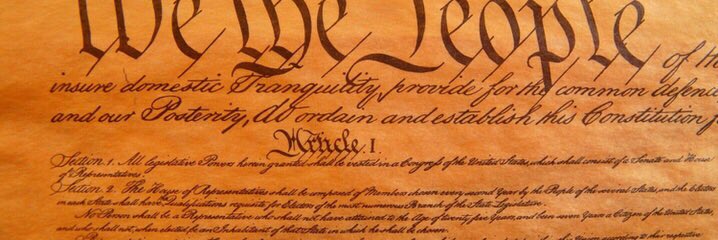 We the People of the
insure domestic Tranquility, provide for the common defence
and our Posterity, do ordain and establish this Constitution f
Article. I.
Section. 1. All legislative Powers herein granted shall be vested in a Congress of the United States, which shall consist of a Senate and House
of Representatives.
Section. 2. The House of Representatives shall be composed of Members chosen every second Year by the People of the several States, and the Electors
in each State shall have the Qualifications requisite for Electors of the most numerous Branch of the State Legislature.
No Person shall be a Representative who shall not have attained to the Age of twenty five Years, and been seven Years a Citizen of the United States,
and who shall not, when elected, be an Inhabitant of that State in which he shall be chosen.
according to their respective